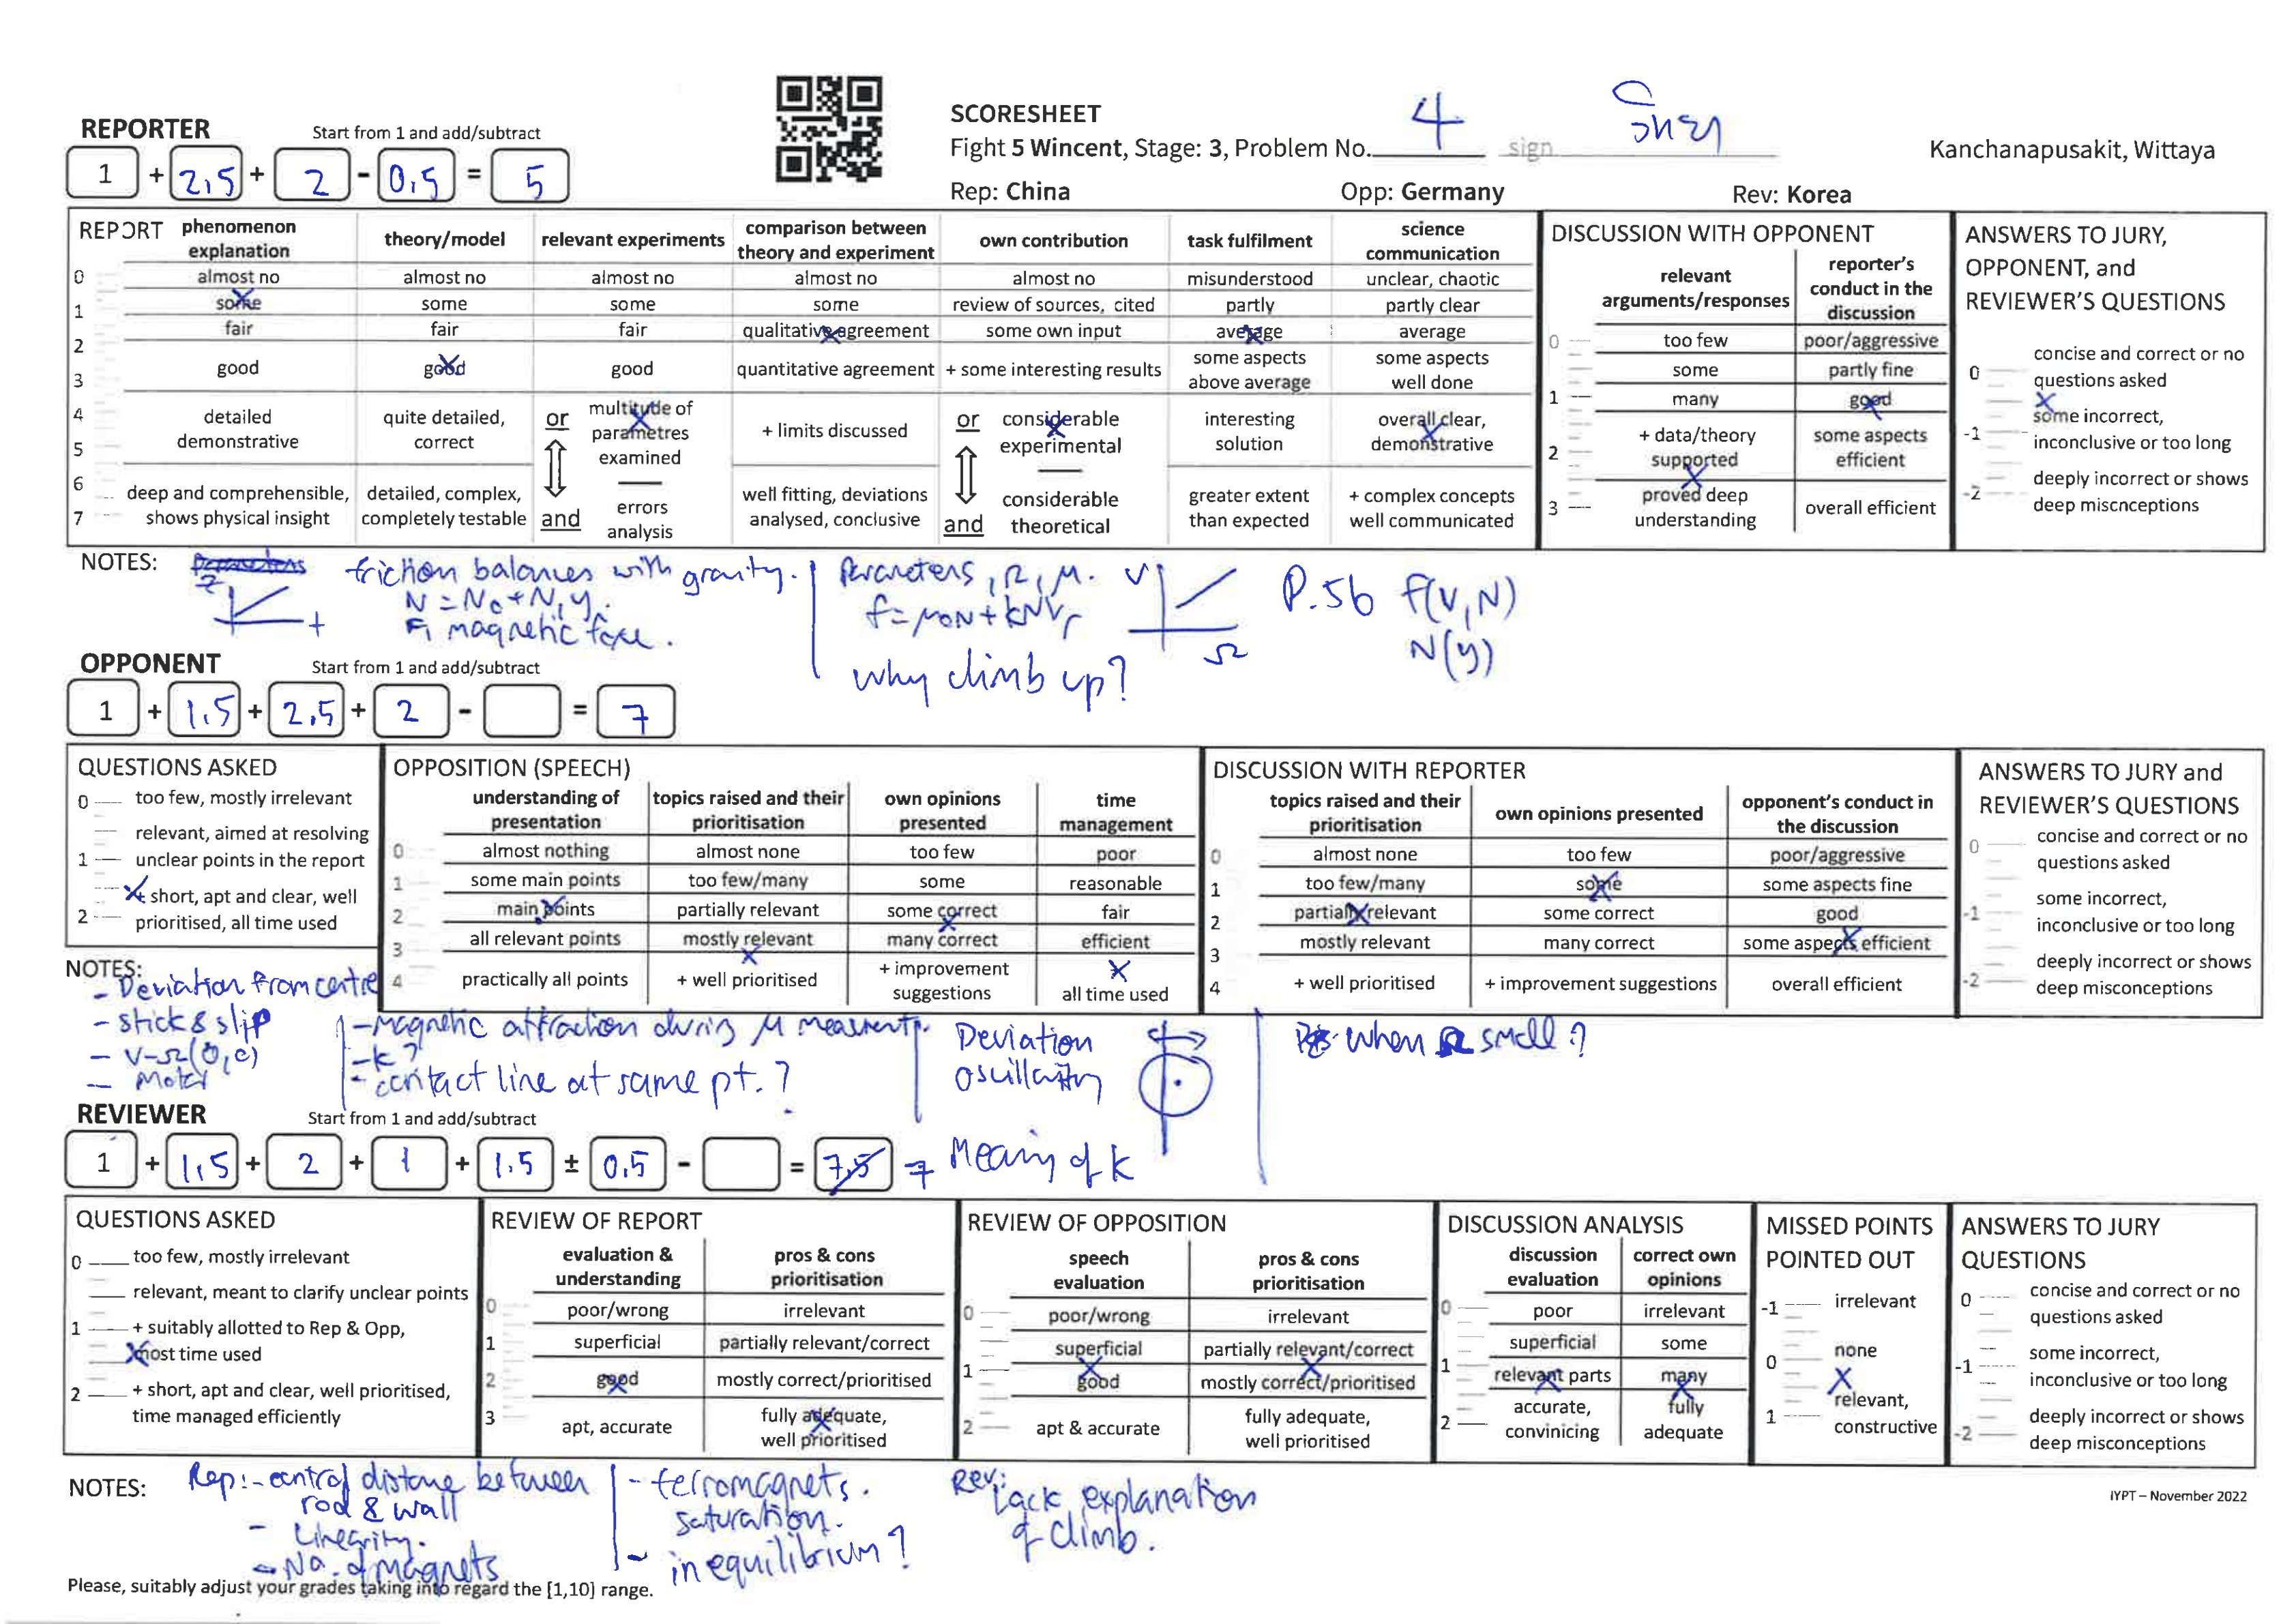 SCORESHEET
Fight 5 Wincent, Stage: 3, Problem No. 4 sign
Kanchanapusakit, Wittaya
Rep: China Opp: Germany Rev: Korea
REPORTER Start from 1 and add/subtract
1 + 2,5 + 2 - 0,5 = 5
REPORT
phenomenon explanation
theory/model
relevant experiments
comparison between theory and experiment
own contribution
task fulfilment
science communication
0 almost no almost no almost no almost no almost no misunderstood unclear, chaotic
1 some some some some review of sources, cited partly partly clear
2 fair fair fair qualitative agreement some own input average average
3 good good good quantitative agreement + some interesting results some aspects above average some aspects well done
4
5
detailed demonstrative
quite detailed, correct
or multitude of parametres examined
+ limits discussed
or considerable experimental
interesting solution
overall clear, demonstrative
6
7
deep and comprehensible, shows physical insight
detailed, complex, completely testable
and errors analysis
well fitting, deviations analysed, conclusive
and considerable theoretical
greater extent than expected
+ complex concepts well communicated
DISCUSSION WITH OPPONENT
relevant arguments/responses
reporter's conduct in the discussion
0 too few poor/aggressive
some partly fine
1 many good
2 + data/theory supported some aspects efficient
3 proved deep understanding overall efficient
ANSWERS TO JURY,
OPPONENT, and
REVIEWER'S QUESTIONS
0 concise and correct or no questions asked
-1 some incorrect, inconclusive or too long
-2 deeply incorrect or shows deep miscnceptions
NOTES:
friction balances with gravity.
N = N0 + N1y.
F, magnetic force.
Parameters, Ω, μ.
f = μ0N + kNVr
V
Ω
why climb up?
P.56 f(V,N)
N(y)
OPPONENT Start from 1 and add/subtract
1 + 1.5 + 2.5 + 2 - = 7
QUESTIONS ASKED
0 too few, mostly irrelevant
relevant, aimed at resolving
1 unclear points in the report
+ short, apt and clear, well
2 prioritised, all time used
OPPOSITION (SPEECH)
understanding of presentation
topics raised and their prioritisation
own opinions presented
time management
0 almost nothing almost none too few poor
1 some main points too few/many some reasonable
2 main points partially relevant some correct fair
3 all relevant points mostly relevant many correct efficient
4 practically all points + well prioritised + improvement suggestions all time used
DISCUSSION WITH REPORTER
topics raised and their prioritisation
own opinions presented
opponent's conduct in the discussion
0 almost none too few poor/aggressive
1 too few/many some some aspects fine
2 partially relevant some correct good
3 mostly relevant many correct some aspects efficient
4 + well prioritised + improvement suggestions overall efficient
ANSWERS TO JURY and
REVIEWER'S QUESTIONS
0 concise and correct or no questions asked
-1 some incorrect, inconclusive or too long
-2 deeply incorrect or shows deep misconceptions
NOTES:
- Deviation from centre
- stick & slip
- V-Ω(0,0)
- Motor
- magnetic attraction during μ measurent.
- k?
- contact line at same pt.?
Deviation
oscillating
Meaning of k
when Ω small?
REVIEWER Start from 1 and add/subtract
1 + 1,5 + 2 + 1 + 1.5 ± 0.5 - = 7,5 7
QUESTIONS ASKED
0 too few, mostly irrelevant
relevant, meant to clarify unclear points
1 + suitably allotted to Rep & Opp,
most time used
2 + short, apt and clear, well prioritised,
time managed efficiently
REVIEW OF REPORT
evaluation & understanding
pros & cons prioritisation
0 poor/wrong irrelevant
1 superficial partially relevant/correct
2 good mostly correct/prioritised
3 apt, accurate fully adequate, well prioritised
REVIEW OF OPPOSITION
speech evaluation
pros & cons prioritisation
0 poor/wrong irrelevant
superficial partially relevant/correct
1 good mostly correct/prioritised
2 apt & accurate fully adequate, well prioritised
DISCUSSION ANALYSIS
discussion evaluation
correct own opinions
0 poor irrelevant
superficial some
1 relevant parts many
2 accurate, convinicing fully adequate
MISSED POINTS
POINTED OUT
-1 irrelevant
0 none
1 relevant, constructive
ANSWERS TO JURY
QUESTIONS
0 concise and correct or no questions asked
-1 some incorrect, inconclusive or too long
-2 deeply incorrect or shows deep misconceptions
NOTES:
Rep:- control distance between
rod & wall
- Linearity.
- No. of magnets
- ferromagnets.
saturation.
- in equilibrium?
Rev: Lack explanation
of climb.
IYPT – November 2022
Please, suitably adjust your grades taking into regard the [1,10] range.